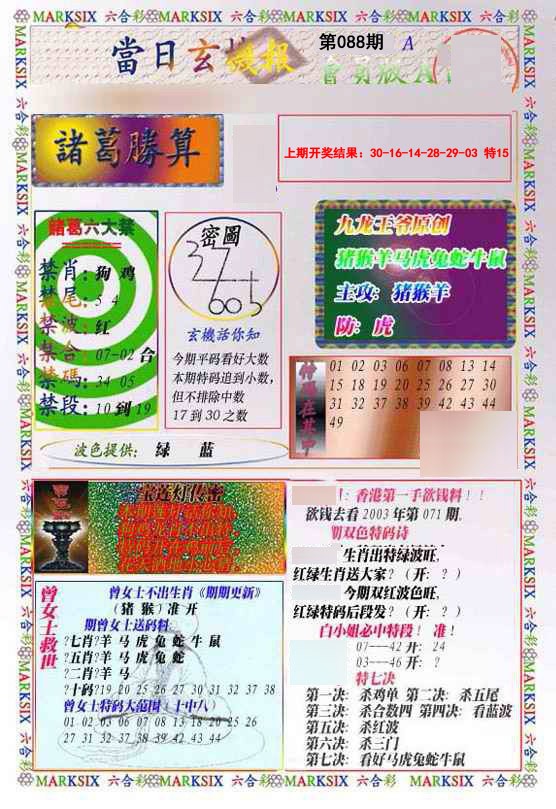 MARKSIX 六合彩 MARKSIX 六合彩 MARKSIX 六合彩 MARKSIX 六合彩 MARKSIX
當日玄機報
第088期 A
會員版A
諸葛勝算
上期开奖结果：30-16-14-28-29-03 特15
諸葛六大禁
禁肖：狗 鸡
禁尾：5 4
禁波：红
禁合：07-02 合
禁碼：34 05
禁段：10 到 19
密圖
玄機話你知
今期平码看好大数
本期特码追到小数，
但不排除中数
17 到 30 之数
九龙王爷原创
猪猴羊马虎兔蛇牛鼠
主攻：猪猴羊
防：虎
01 02 03 06 07 08 13 14
15 18 19 20 25 26 27 30
31 32 37 38 39 42 43 44
49
波色提供： 绿 蓝
宝莲灯传密
曾女士救世
曾女士不出生肖《期期更新》
（猪 猴）准 开
期曾女士送码料
?七肖?羊 马 虎 兔 蛇 牛 鼠
?五肖?羊 马 虎 兔 蛇
?二肖?羊 马
?十码?19 20 25 26 27 30 31 32 37 38
曾女士特码大范围（十中八）
01 02 03 06 07 08 13 18 20 25 26
27 31 32 37 38 39 42 43 44
：香港第一手欲钱料！！
欲钱去看 2003 年第 071 期.
期双色特码诗
生肖出特绿波旺，
红绿生肖送大家？（开：？）
今期双红波色旺，
红绿特码后段发？（开：？）
白小姐必中特段！ 准！
07---42 开： 24
03---46 开： ？
特七决
第一决：杀鸡单 第二决：杀五尾
第三决：杀合数四 第四决：看蓝波
第五决：杀红波
第六决：杀三门
第七决：看好马虎兔蛇牛鼠
MARKSIX 六合彩 MARKSIX 六合彩 MARKSIX 六合彩 MARKSIX 六合彩 MARKSIX